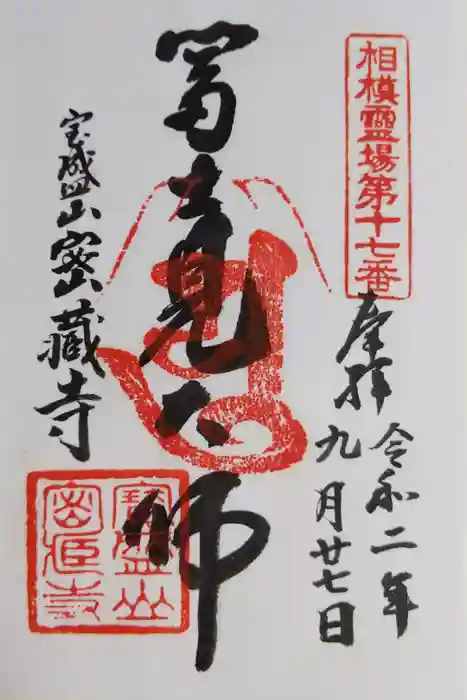 相模靈場第十七番
奉拝
令和二年
九月廿七日
冨士見大師
宝盛山密蔵寺
寶盛山
密蔵寺